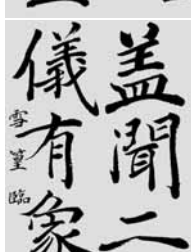 盖聞二
儀有象
雪篁臨